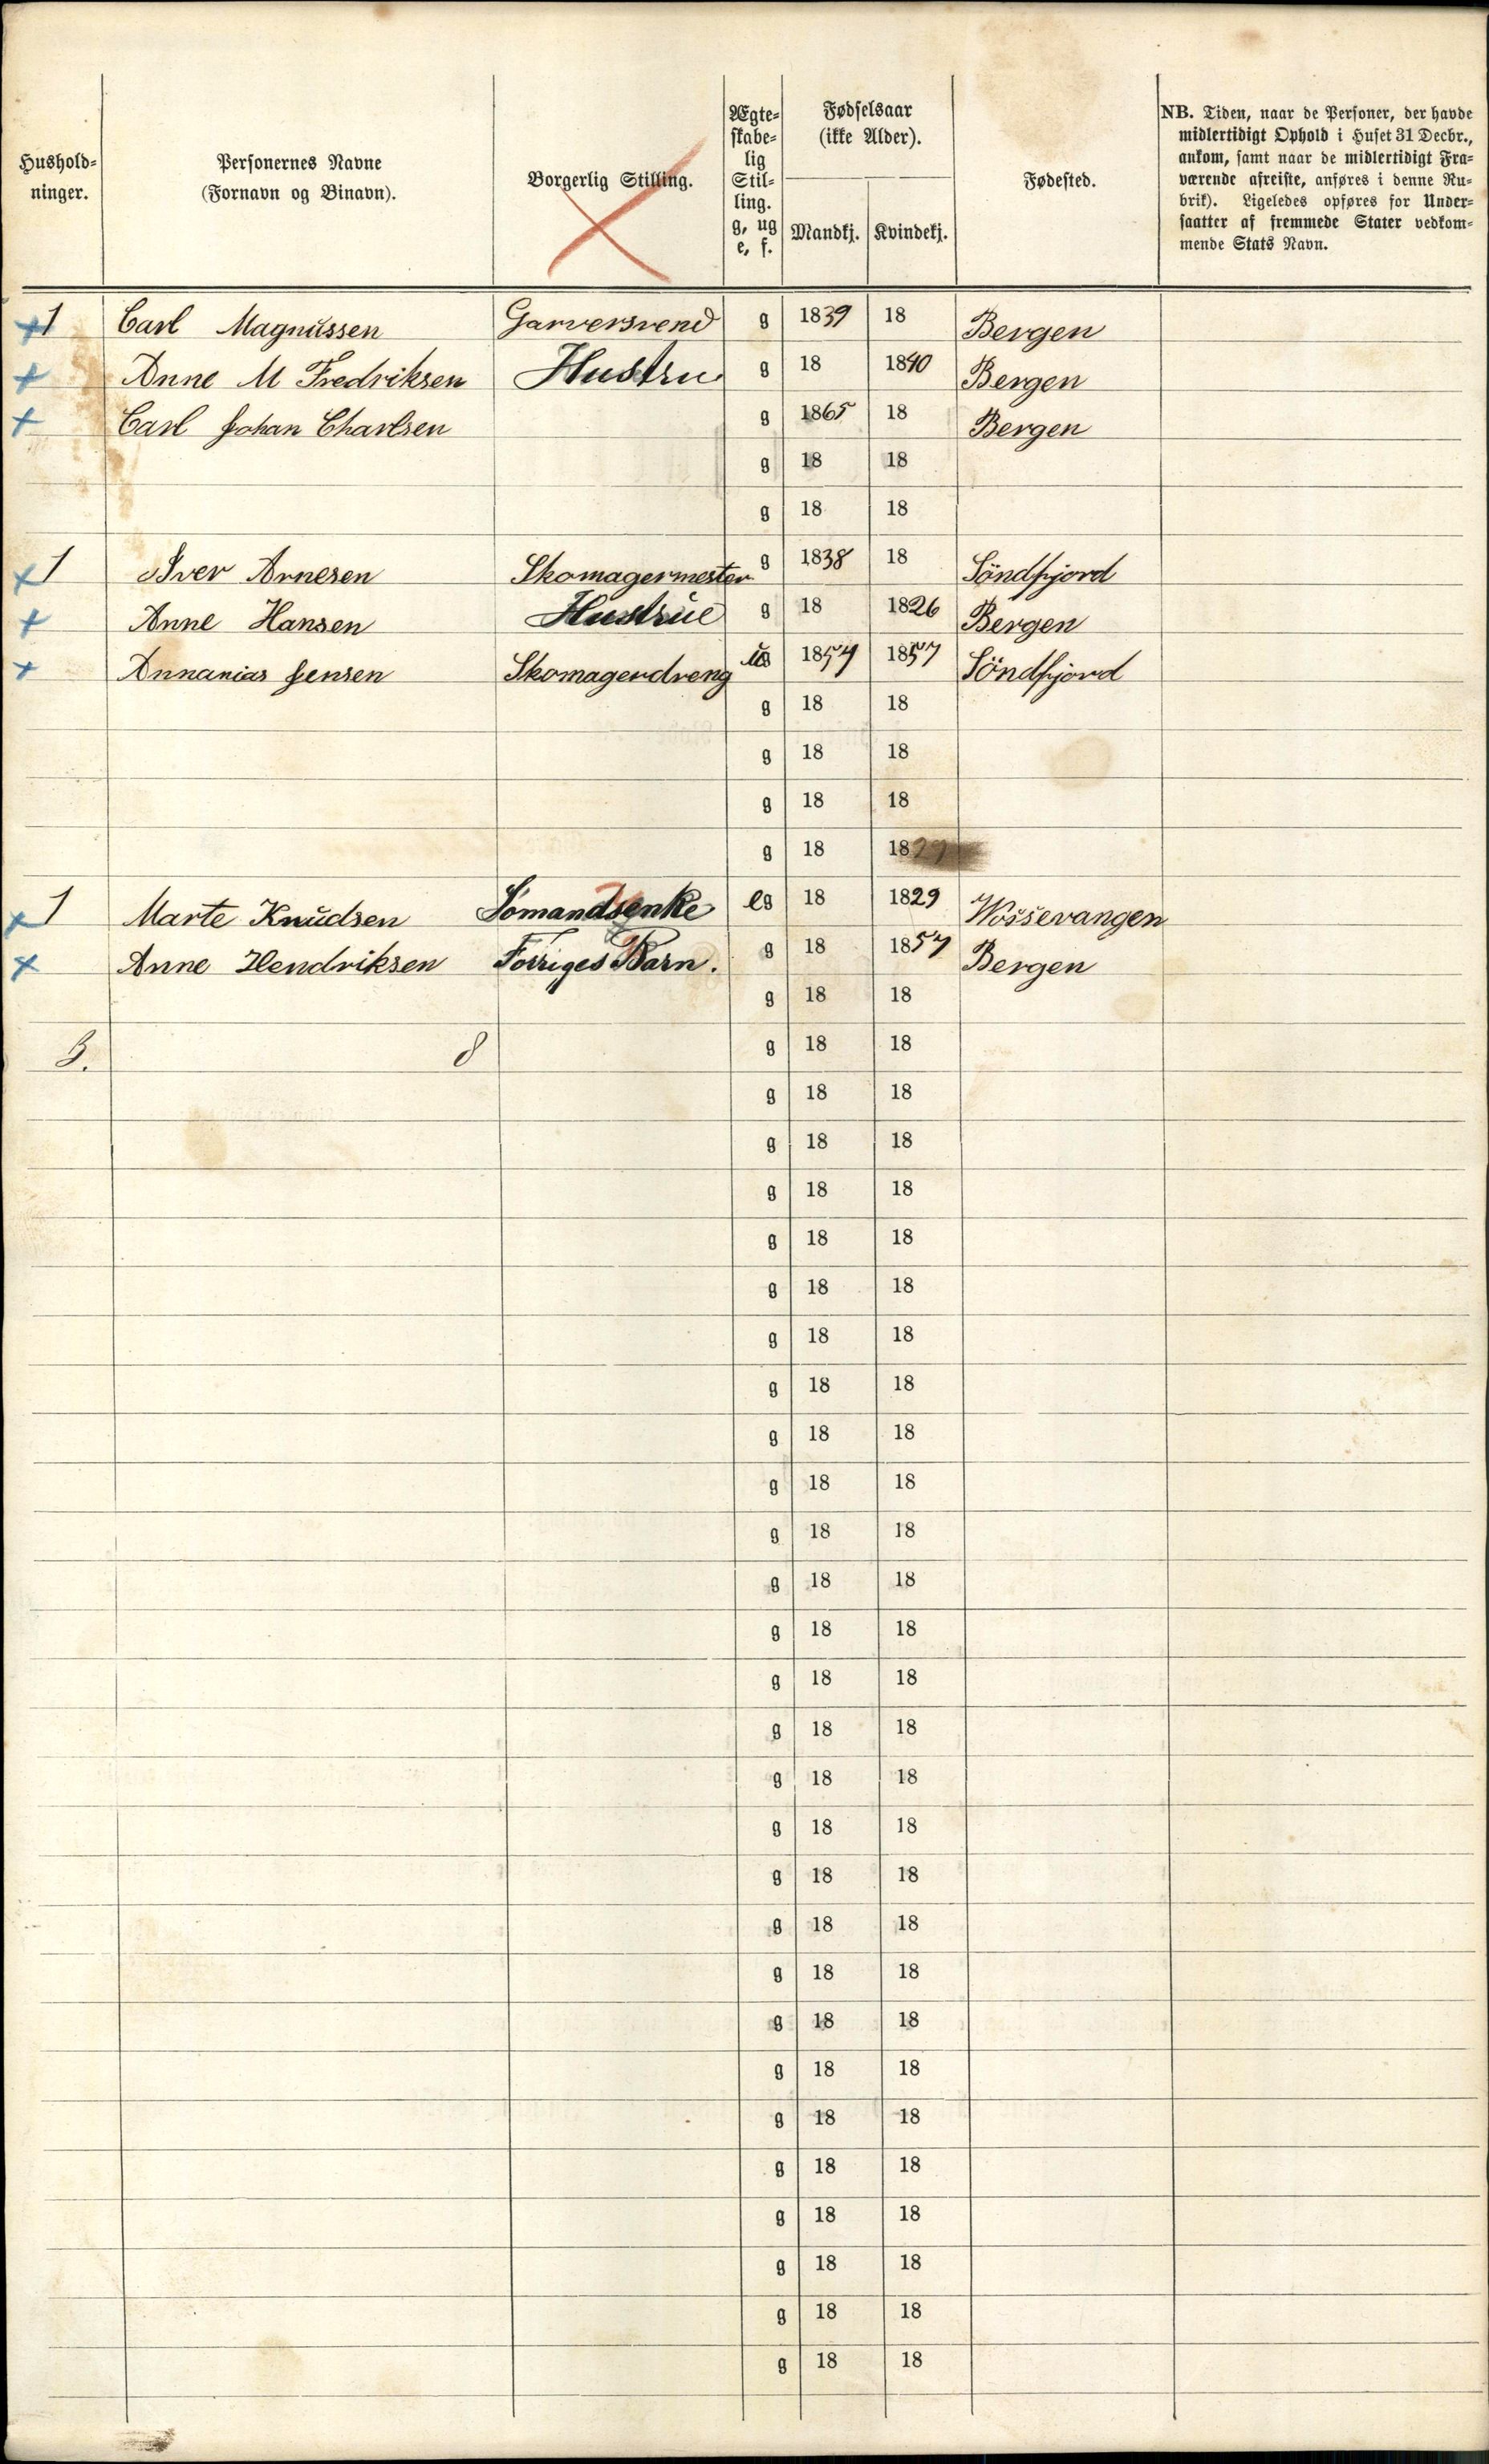 Hushold-
ninger.
Personernes Navne
(Fornavn og Binavn).
Borgerlig Stilling.
Ægte-
skabe-
lig
Stil-
ling.
g, ug
e, f.
Fødselsaar
(ikke Alder).
Mandkj. Kvindekj.
Fødested.
NB. Tiden, naar de Personer, der havde
midlertidigt Ophold i Huset 31 Decbr.,
ankom, samt naar de midlertidigt Fra-
værende afreiste, anføres i denne Ru-
brik). Ligeledes opføres for Under-
saatter af fremmede Stater vedkom-
mende Stats Navn.
1 Carl Magnussen Garversvend g 1839 18 Bergen
Anne M Fredriksen Hustru g 18 1840 Bergen
Carl Johan Charlsen g 1865 18 Bergen
g 18 18
g 18 18
1 Iver Arnesen Skomagermester g 1838 18 Söndfjord
Anne Hansen Hustrue g 18 1826 Bergen
Annanias Jensen Skomagerdreng ug 1854 1857 Söndfjord
g 18 18
g 18 18
g 18 18
g 18 18
1 Marte Knudsen Sömandsenke eg 18 1829 Wossevangen
Anne Hendriksen Forriges Barn. g 18 1857 Bergen
g 18 18
3. 8 g 18 18
g 18 18
g 18 18
g 18 18
g 18 18
g 18 18
g 18 18
g 18 18
g 18 18
g 18 18
g 18 18
g 18 18
g 18 18
g 18 18
g 18 18
g 18 18
g 18 18
g 18 18
g 18 18
g 18 18
g 18 18
g 18 18
g 18 18
g 18 18
g 18 18
g 18 18
g 18 18
g 18 18